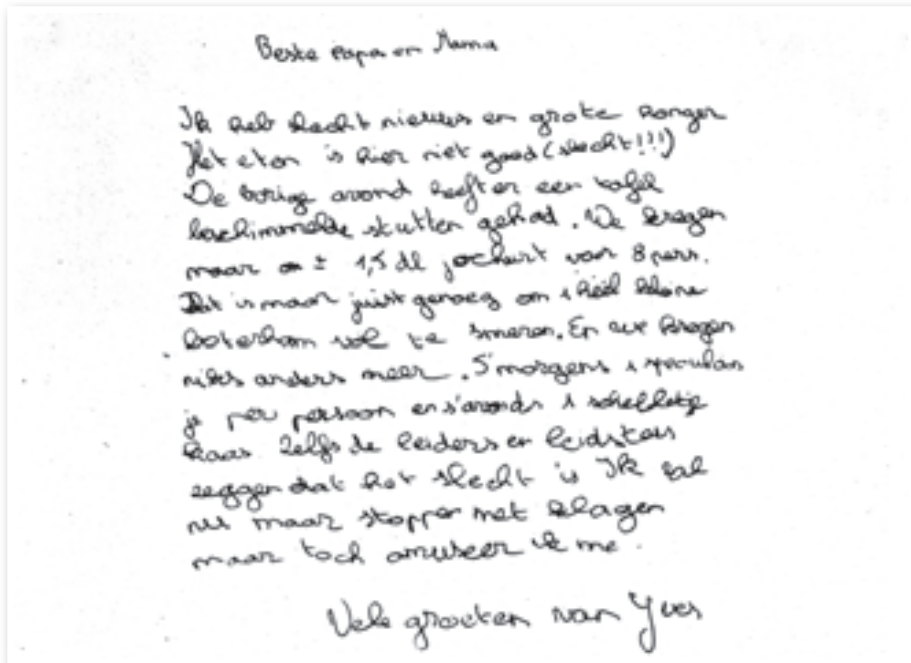 Beste Papa en Mama
Ik heb slecht nieuws en grote honger
Het eten is hier niet goed (slecht!!!)
De vorige avond heeft er een tafel
beschimmelde stutten gehad. We kregen
maar ± 1,5 dl jochurt voor 8 pers.
Dit is maar juist genoeg om 1 heel kleine
boterham vol te smeren. En we kregen
niks anders meer. S'morgens 1 speculas
je per persoon en s'avonds 1 schelletje
kaas. Zelfs de leiders en leidsters
zeggen dat het slecht is Ik zal
nu maar stoppen met klagen
maar toch amuseer ik me.
Vele groeten van Yves